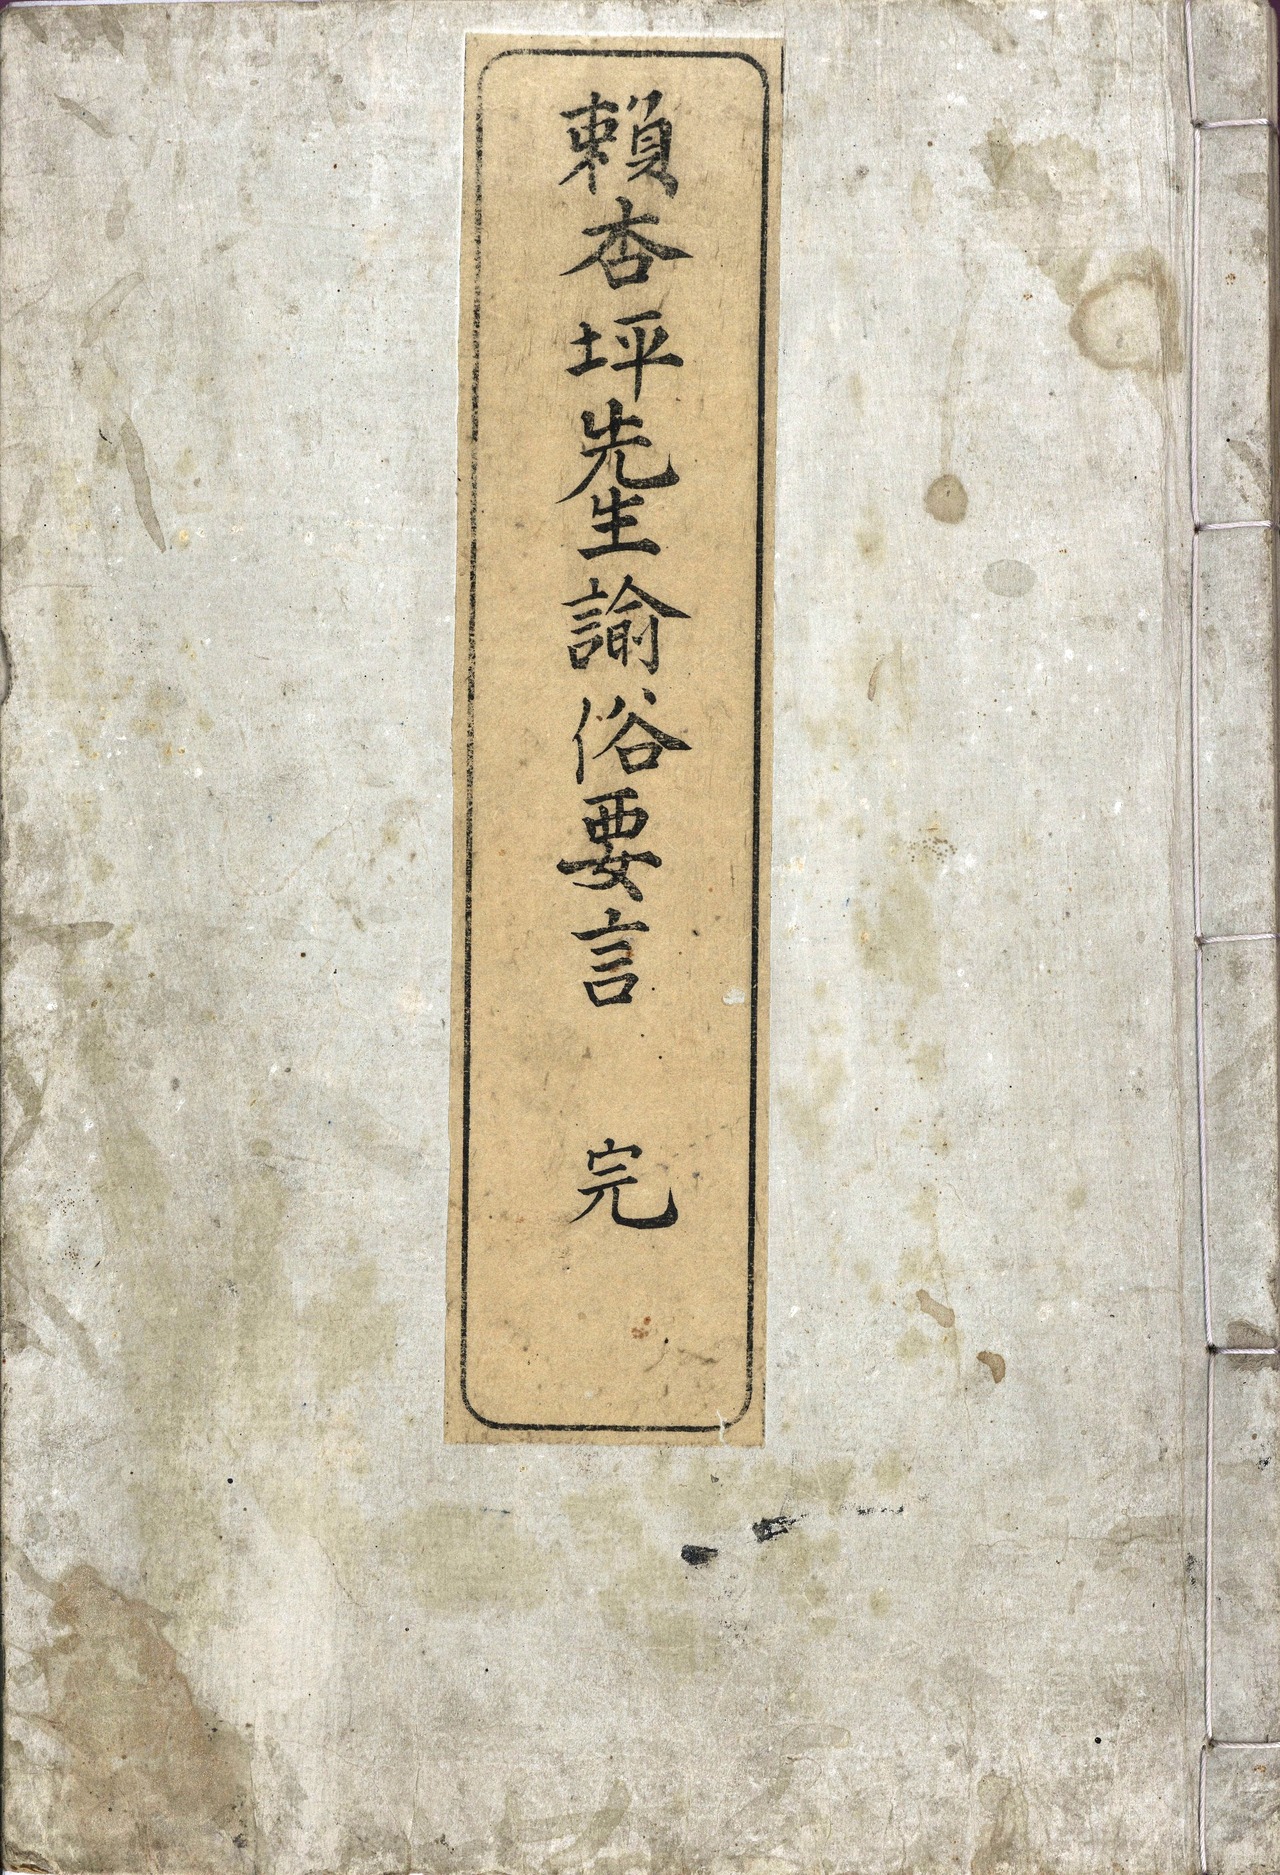 頼杏坪先生諭俗要言　完